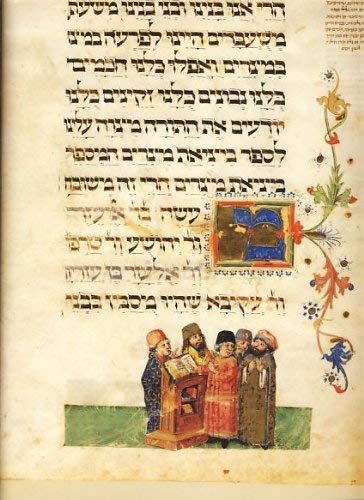 הרי אנו בנינו ובני בנינו
משעבדים היינו לפרעה
במצרים ואפלו כלנו חכמים
כלנו נבונים כלנו זקנים כלנו
יודעים את התורה מצוה עלינו
לספר ביציאת מצרים המספר
ביציאת מצרים הרי זה משובח
עשה בר אליעזר
ור יהושע
ור אלעזר בן עזריה
ור עקיבא שהיו מסובין בבני